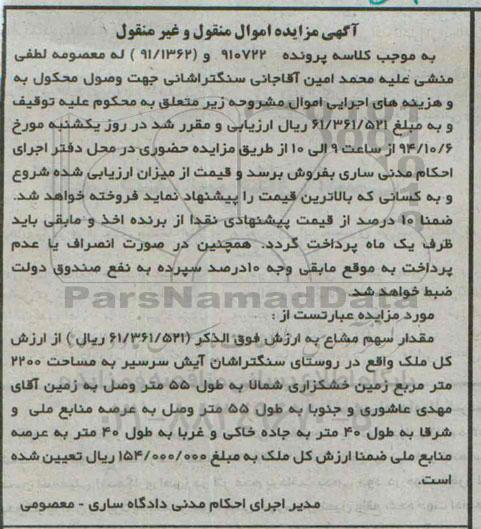 آگهی مزایده اموال منقول و غیر منقول
به موجب کلاسه پرونده ۹۱۰۷۲۲ و (۹۱/۱۳۶۲ ) له معصومه لطفی
منشی علیه محمد امین آقاجانی سنگتراشانی جهت وصول محکول به
و هزینه های اجرایی اموال مشروحه زیر متعلق به محکوم علیه توقیف
و به مبلغ ۶۱/۳۶۱/۵۲۱ ریال ارزیابی و مقرر شد در روز یکشنبه مورخ
۹۴/۱۰/۶ از ساعت ۹ الی ۱۰ از طریق مزایده حضوری در محل دفتر اجرای
احکام مدنی ساری بفروش برسد و قیمت از میزان ارزیابی شده شروع
و به کسانی که بالاترین قیمت را پیشنهاد نماید فروخته خواهد شد.
ضمنا ۱۰ درصد از قیمت پیشنهادی نقدا از برنده اخذ و مابقی باید
ظرف یک ماه پرداخت گردد. همچنین در صورت انصراف یا عدم
پرداخت به موقع مابقی وجه ۱۰درصد سپرده به نفع صندوق دولت
ضبط خواهد شد.
ParsNamadData
مورد مزایده عبارتست از :
مقدار سهم مشاع به ارزش فوق الذکر (۶۱/۳۶۱/۵۲۱ ریال ) از ارزش
کل ملک واقع در روستای سنگتراشان آیش سرسیر به مساحت ۲۲۰۰
متر مربع زمین خشکزاری شمالا به طول ۵۵ متر وصل به زمین آقای
مهدی عاشوری و جنوبا به طول ۵۵ متر وصل به عرصه منابع ملی و
شرقا به طول ۴۰ متر به جاده خاکی و غربا به طول ۴۰ متر به عرصه
منابع ملی ضمنا ارزش کل ملک به مبلغ ۱۵۴/۰۰۰/۰۰۰ ریال تعیین شده
است.
مدیر اجرای احکام مدنی دادگاه ساری - معصومی